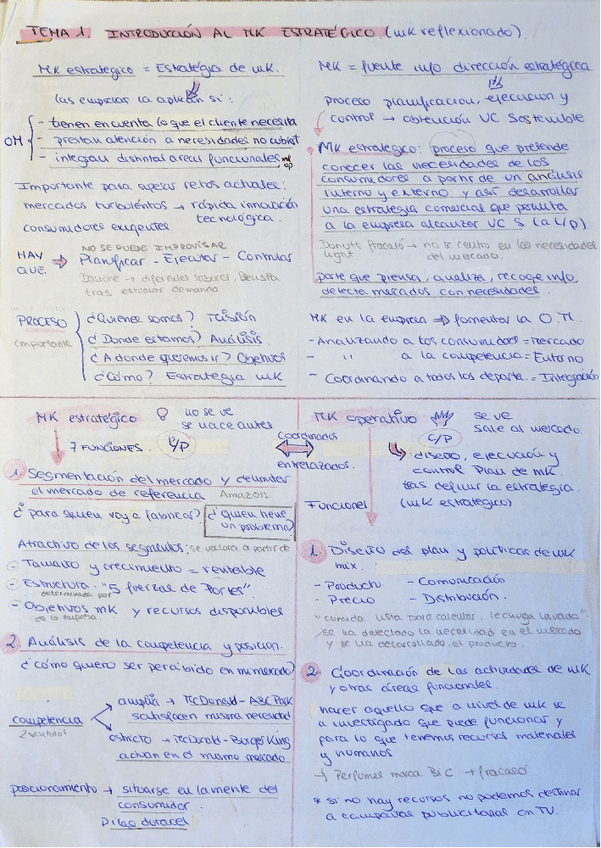 TEMA 1. INTRODUCCIÓN AL MK ESTRATÉGICO (mk reflexionado).
MK estratégico = Estrategia de mk.
las empresas la aplican si:
OM
- tienen en cuenta lo que el cliente necesita
- prestan atención a necesidades no cubiert
- integran distintas areas funcionales
Importante para superar retos actuales:
mercados turbulentos → rápida innovación
tecnológica.
consumidores exigentes
NO SE PUEDE IMPROVISAR
HAY QUE ⇒ Planificar - Ejecutar - Controlar
Danone → diferentes sabores, Densita
tras estudiar demanda
PROCESO
importante
¿Quienes somos? Misión
¿Donde estamos? Análisis
¿A donde queremos ir? Objetivos
¿Cómo? Estrategia mk
MK = fuente info dirección estratégica
Proceso planificación, ejecución y
control → obtención VC Sostenible
MK estratégico: proceso que pretende
conocer las necesidades de los
consumidores a partir de un análisis
interno y externo y así desarrollar
una estrategia comercial que permita
a la empresa alcanzar VC S (a L/p)
Donuts fracasó → no se centro en las necesidades
light del mercado.
parte que piensa, analiza, recoge info,
detecta mercados con necesidades.
MK en la empresa ⇒ fomentar la O.M.
- Analizando a los consumidores = Mercado
- " a la competencia = Entorno
- Coordinando a todos los departa. = Integración
MK estratégico no se ve
se hace antes
7 FUNCIONES. L/P
1. Segmentación del mercado y delimitar
el mercado de referencia Amazon
¿para quien voy a fabricar? ¿quien tiene
un problema?
Atractivo de los segmentos: se valora a partir de
- Tamaño y crecimiento = rentable
- Estructura "5 fuerzas de Porter"
determinada por
- Objetivos mk y recursos disponibles
de la empresa
2. Análisis de la competencia y posicion.
¿cómo quiero ser percibido en mi mercado?
competencia
2 sentidos
amplia → McDonald - ABC Park
satisfacen misma necesidad
estricto → McDonald - Burger King
actuan en el mismo mercado
posicionamiento → situarse en la mente del
consumidor.
Pilas duracel
coordinados
entrelazados.
MK operativo se ve
sale al mercado.
C/P
diseño, ejecución y
control Plan de mk.
tras definir la estrategia
(mk estratégico)
Funciones
1. Diseño del plan y políticas de mk
mix.
- Producto - Comunicación
- Precio - Distribución.
"comida lista para calentar, lechuga lavada"
se ha detectado la necesidad en el mercado
y se ha desarrollado el producto.
2. Coordinación de las actividades de mk
y otras áreas funcionales.
hacer aquello que a nivel de mk se
a investigado que puede funcionar y
para lo que tenemos recursos materiales
y humanos
→ Perfumes marca BIC → fracasó
* si no hay recursos no podemos destinar
a campañas publicitarias en TV.